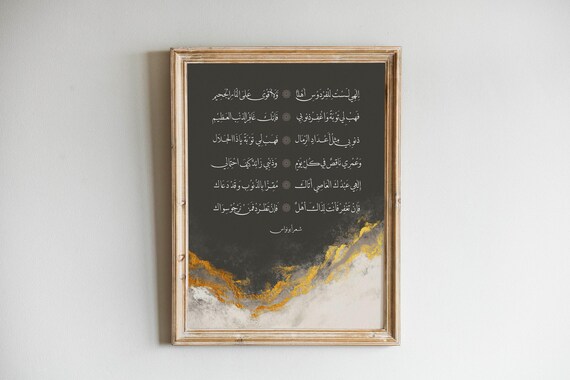 إلهي لست للفردوس أهلا ولا أقوى على النار الجحيم
فهب لي توبة واغفر ذنوبي فإنك غافر الذنب العظيم
ذنوبي مثل أعداد الرمال فهب لي توبة يا ذا الجلال
وعمري ناقص في كل يوم وذنبي زايد كيف احتمالي
إلهي عبدك العاصي أتاك مقرا بالذنوب وقد دعاك
فإن تغفر فأنت لذاك أهل فإن تطرد فمن نرجو سواك
شعر أبو نواس